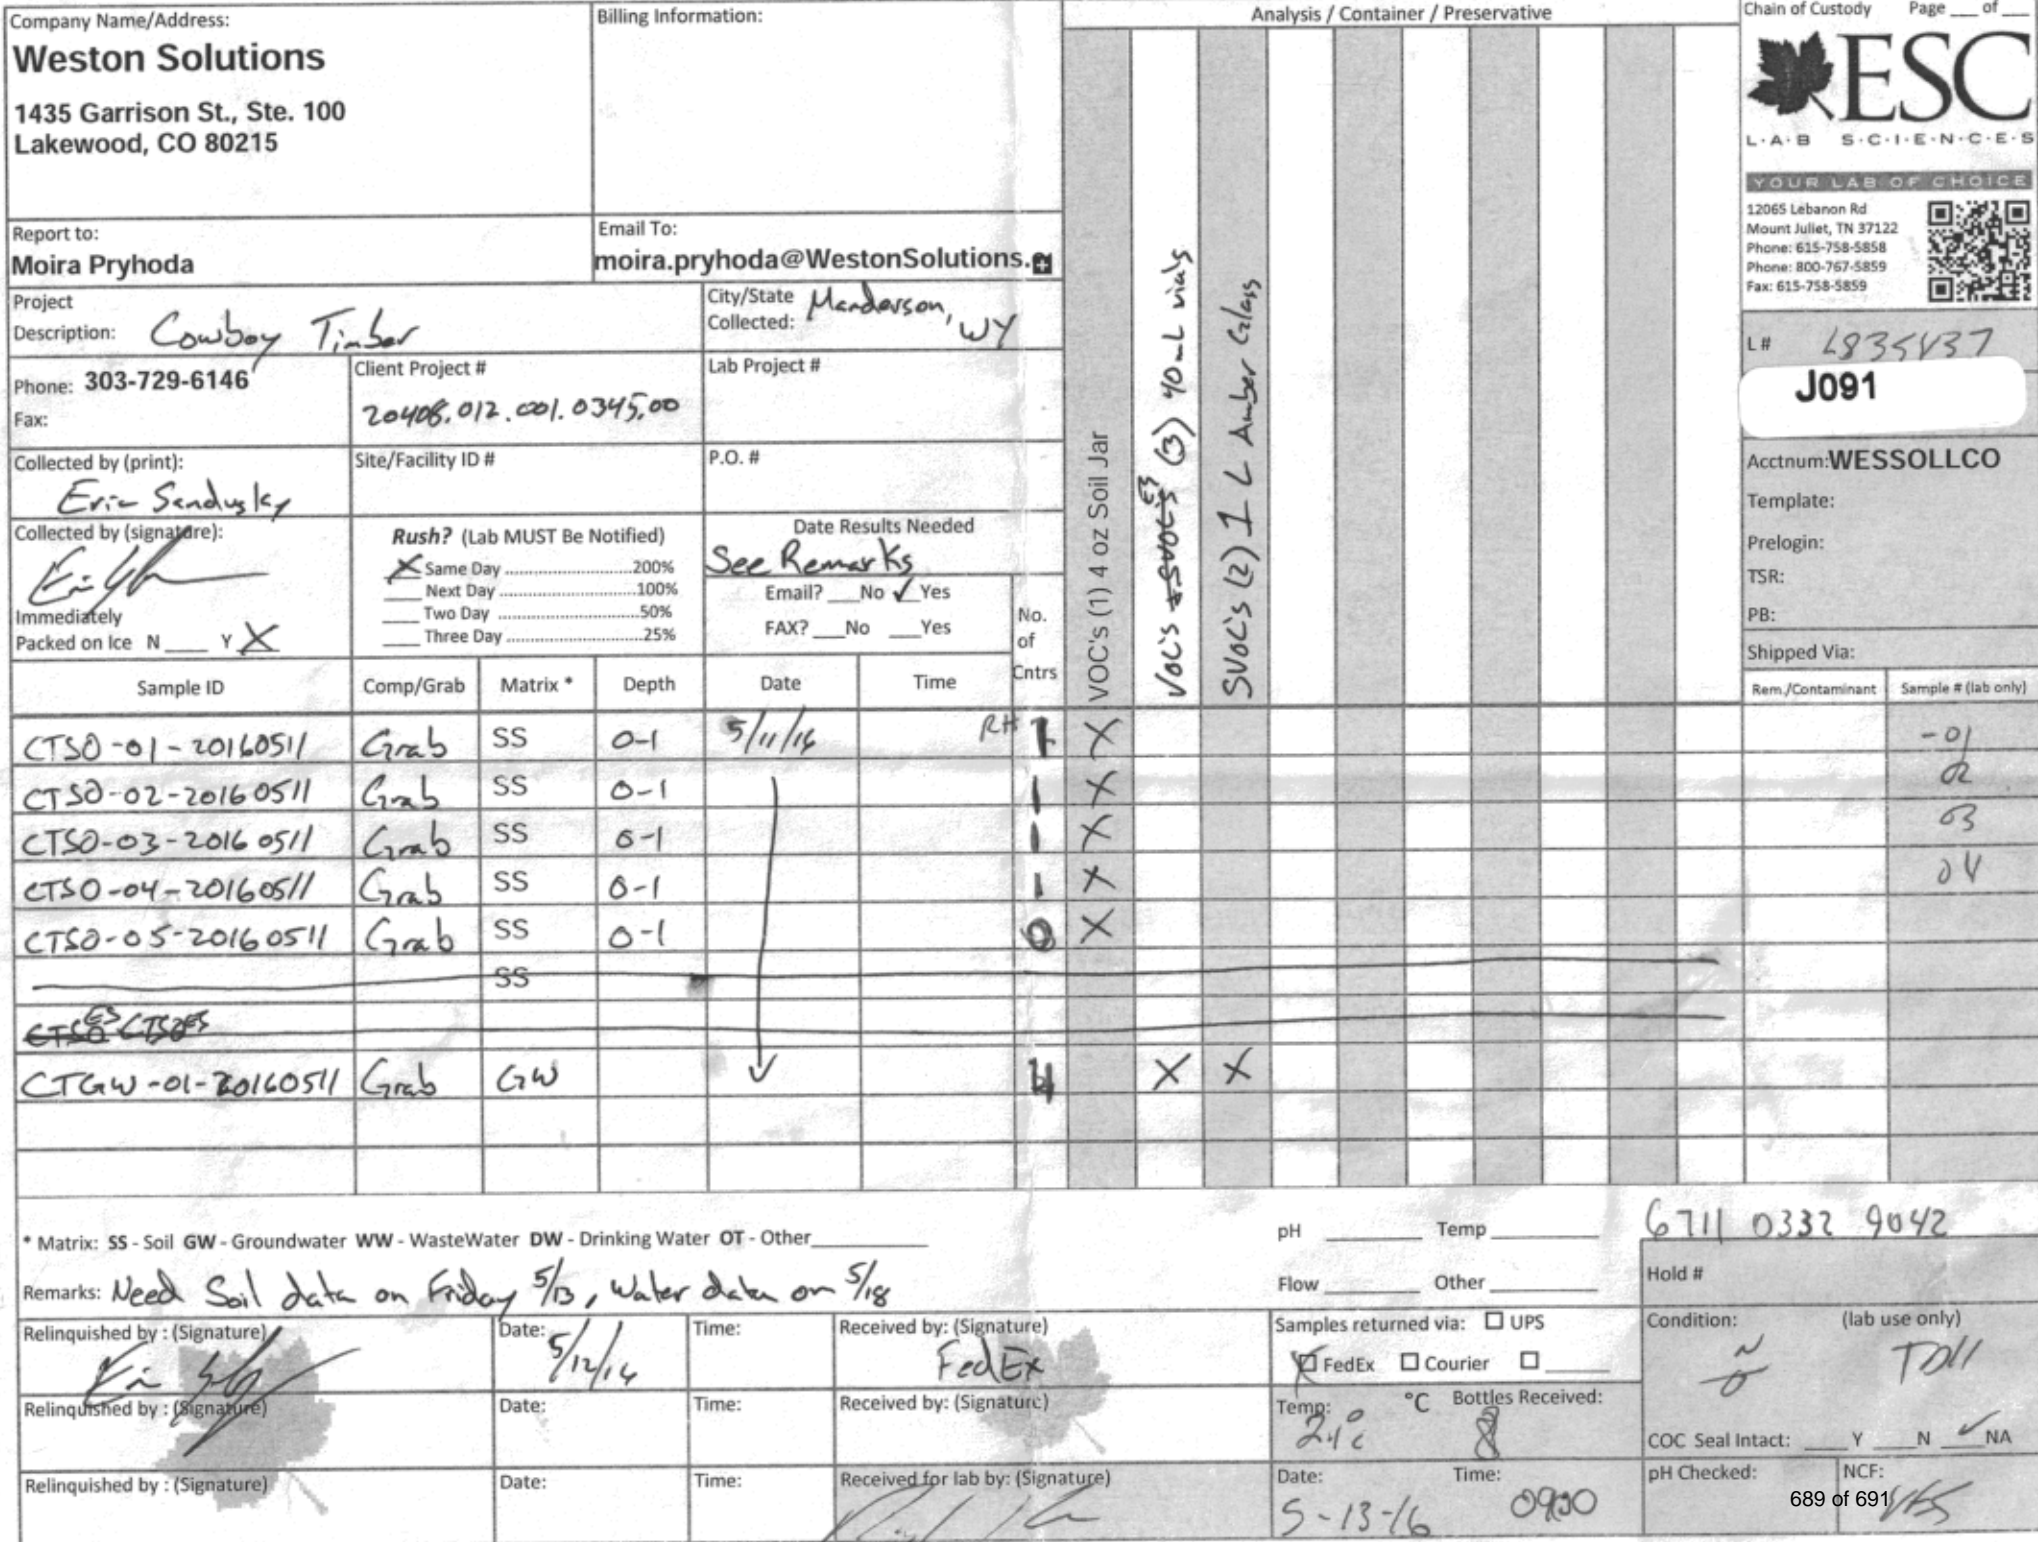 Company Name/Address:
Weston Solutions
1435 Garrison St., Ste. 100
Lakewood, CO 80215
Billing Information:
Analysis / Container / Preservative
Chain of Custody Page ___ of ___
ESC
L·A·B S·C·I·E·N·C·E·S
YOUR LAB OF CHOICE
12065 Lebanon Rd
Mount Juliet, TN 37122
Phone: 615-758-5858
Phone: 800-767-5859
Fax: 615-758-5859
Report to:
Moira Pryhoda
Email To:
moira.pryhoda@WestonSolutions.
Project
Description: Cowboy Timber
City/State
Collected: Manderson, WY
L# L835437
J091
Phone: 303-729-6146
Fax:
Client Project #
20408.012.001.0345.00
Lab Project #
Collected by (print):
Eric Sandusky
Site/Facility ID #
P.O. #
Acctnum: WESSOLLCO
Template:
Prelogin:
TSR:
PB:
Shipped Via:
Collected by (signature):
Immediately
Packed on Ice N ___ Y X
Rush? (Lab MUST Be Notified)
X Same Day ..............................200%
___ Next Day ..............................100%
___ Two Day ..............................50%
___ Three Day ..............................25%
Date Results Needed
See Remarks
Email? ___No ✓Yes
FAX? ___No ___Yes
No.
of
Cntrs
VOC's (1) 4 oz Soil Jar
VOC's + SVOC's ES (3) 40mL vials
SVOC's (2) 1 L Amber Glass
Sample ID Comp/Grab Matrix * Depth Date Time Rem./Contaminant Sample # (lab only)
CTSO-01-20160511 Grab SS 0-1 5/11/16 RH 1 X -01
CTSO-02-20160511 Grab SS 0-1 1 X 02
CTSO-03-20160511 Grab SS 0-1 1 X 03
CTSO-04-20160511 Grab SS 0-1 1 X 04
CTSO-05-20160511 Grab SS 0-1 0 X
SS
CTSO ES CTSO ES
CTGW-01-20160511 Grab GW 4 X X
* Matrix: SS - Soil GW - Groundwater WW - WasteWater DW - Drinking Water OT - Other___________
pH ________ Temp ________
6711 0332 9042
Remarks: Need Soil data on Friday 5/13, Water data on 5/18
Flow ________ Other ________
Hold #
Relinquished by : (Signature)
Date: 5/12/16
Time:
Received by: (Signature)
FedEx
Samples returned via: ☐ UPS
X☐ FedEx ☐ Courier ☐ ______
Condition: (lab use only)
TDH
Relinquished by : (Signature)
Date:
Time:
Received by: (Signature)
Temp: °C Bottles Received:
8
COC Seal Intact: ___Y ___N ✓NA
Relinquished by : (Signature)
Date:
Time:
Received for lab by: (Signature)
Date: 5-13-16
Time: 0900
pH Checked:
NCF:
689 of 691